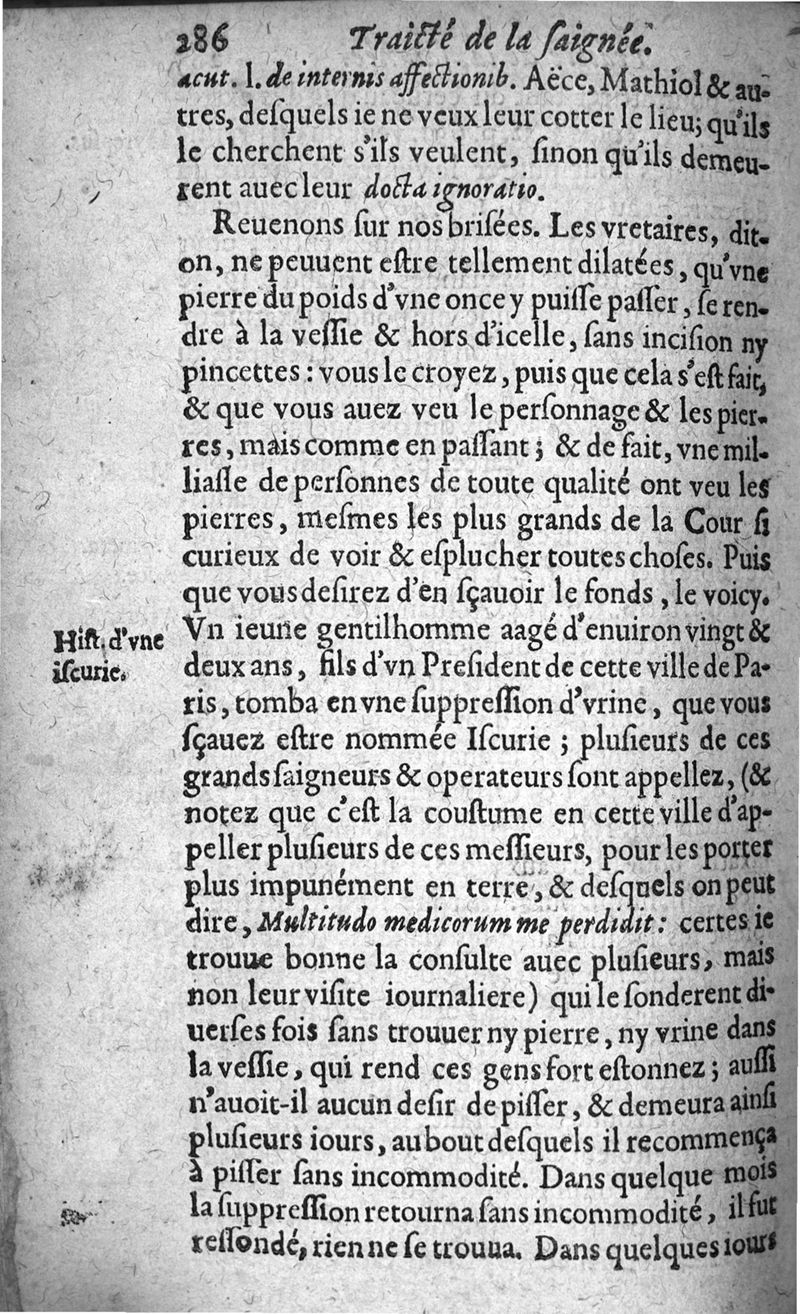 286 Traicté de la ſaignée.
acut. l. de internis affectionib. Aëce, Mathiol & au-
tres, deſquels ie ne veux leur cotter le lieu; qu'ils
le cherchent s'ils veulent, ſinon qu'ils demeu-
rent auec leur docta ignoratio.
Reuenons ſur nos briſées. Les vretaires, dit-
on, ne peuuent eſtre tellement dilatées, qu'vne
pierre du poids d'vne once y puiſſe paſſer, ſe ren-
dre à la veſſie & hors d'icelle, ſans inciſion ny
pincettes : vous le croyez, puis que cela s'eſt fait,
& que vous auez veu le perſonnage & les pier-
res, mais comme en paſſant ; & de fait, vne mil-
liaſſe de perſonnes de toute qualité ont veu les
pierres, meſmes les plus grands de la Cour ſi
curieux de voir & eſplucher toutes choſes. Puis
que vous deſirez d'en ſçauoir le fonds, le voicy.
Hiſt. d'vne
iſcurie.
Vn ieune gentilhomme aagé d'enuiron vingt &
deux ans, fils d'vn Preſident de cette ville de Pa-
ris, tomba en vne ſuppreſſion d'vrine, que vous
ſçauez eſtre nommée Iſcurie ; pluſieurs de ces
grands ſaigneurs & operateurs ſont appellez, (&
notez que c'eſt la couſtume en cette ville d'ap-
peller pluſieurs de ces meſſieurs, pour les porter
plus impunément en terre, & deſquels on peut
dire, Multitudo medicorum me perdidit : certes ie
trouue bonne la conſulte auec pluſieurs, mais
non leur viſite iournaliere) qui le ſonderent di-
uerſes fois ſans trouuer ny pierre, ny vrine dans
la veſſie, qui rend ces gens fort eſtonnez ; auſſi
n'auoit-il aucun deſir de piſſer, & demeura ainſi
pluſieurs iours, au bout deſquels il recommença
à piſſer ſans incommodité. Dans quelque mois
la ſuppreſſion retourna ſans incommodité, il fut
reſſondé, rien ne ſe trouua. Dans quelques iours